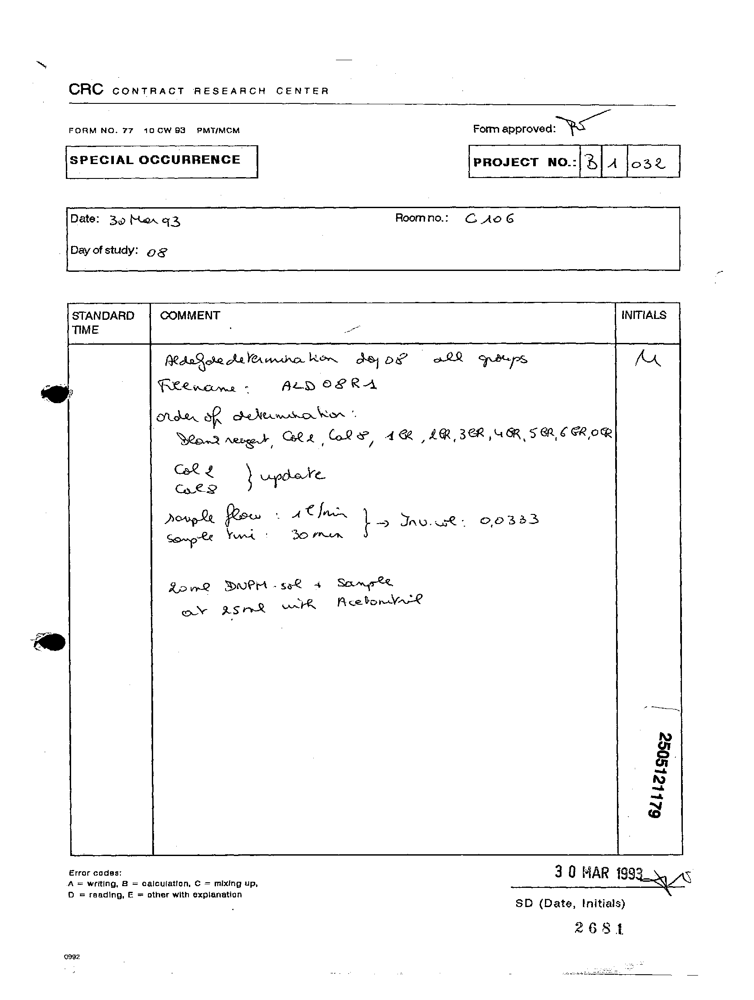 CRC CONTRACT RESEARCH CENTER
FORM NO. 77 10 CW 93 PMT/MCM
Form approved:
SPECIAL OCCURRENCE
PROJECT NO.: B 1 032
Date: 30 Mar 93
Room no.: C 106
Day of study: 08
STANDARD TIME
COMMENT
INITIALS
Aldehyde determination day 08 all groups
Filename: ALD08R1
order of determination:
reagent, Cal 2, Cal 8, 1GR, 2GR, 3GR, 4GR, 5GR, 6GR, 0GR
Cal 2
Cal 8 } update
sample flow: 1 l/min
sample time: 30 min } → Inv. vol: 0,0333
20ml DNPH-sol + Sample
at 25ml with Acetonitril
2505121179
Error codes:
A = writing, B = calculation, C = mixing up,
D = reading, E = other with explanation
30 MAR 1993
SD (Date, Initials)
2681
0992